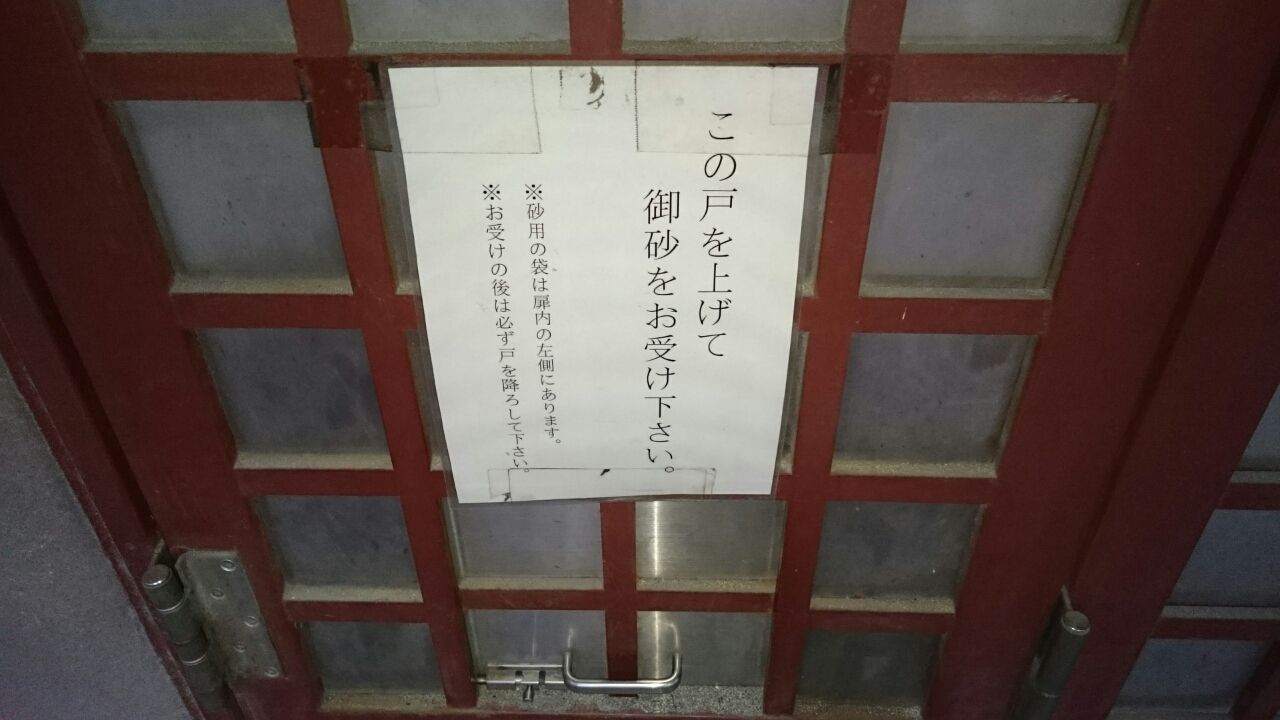 この戸を上げて
御砂をお受け下さい。
※砂用の袋は扉内の左側にあります。
※お受けの後は必ず戸を降ろして下さい。